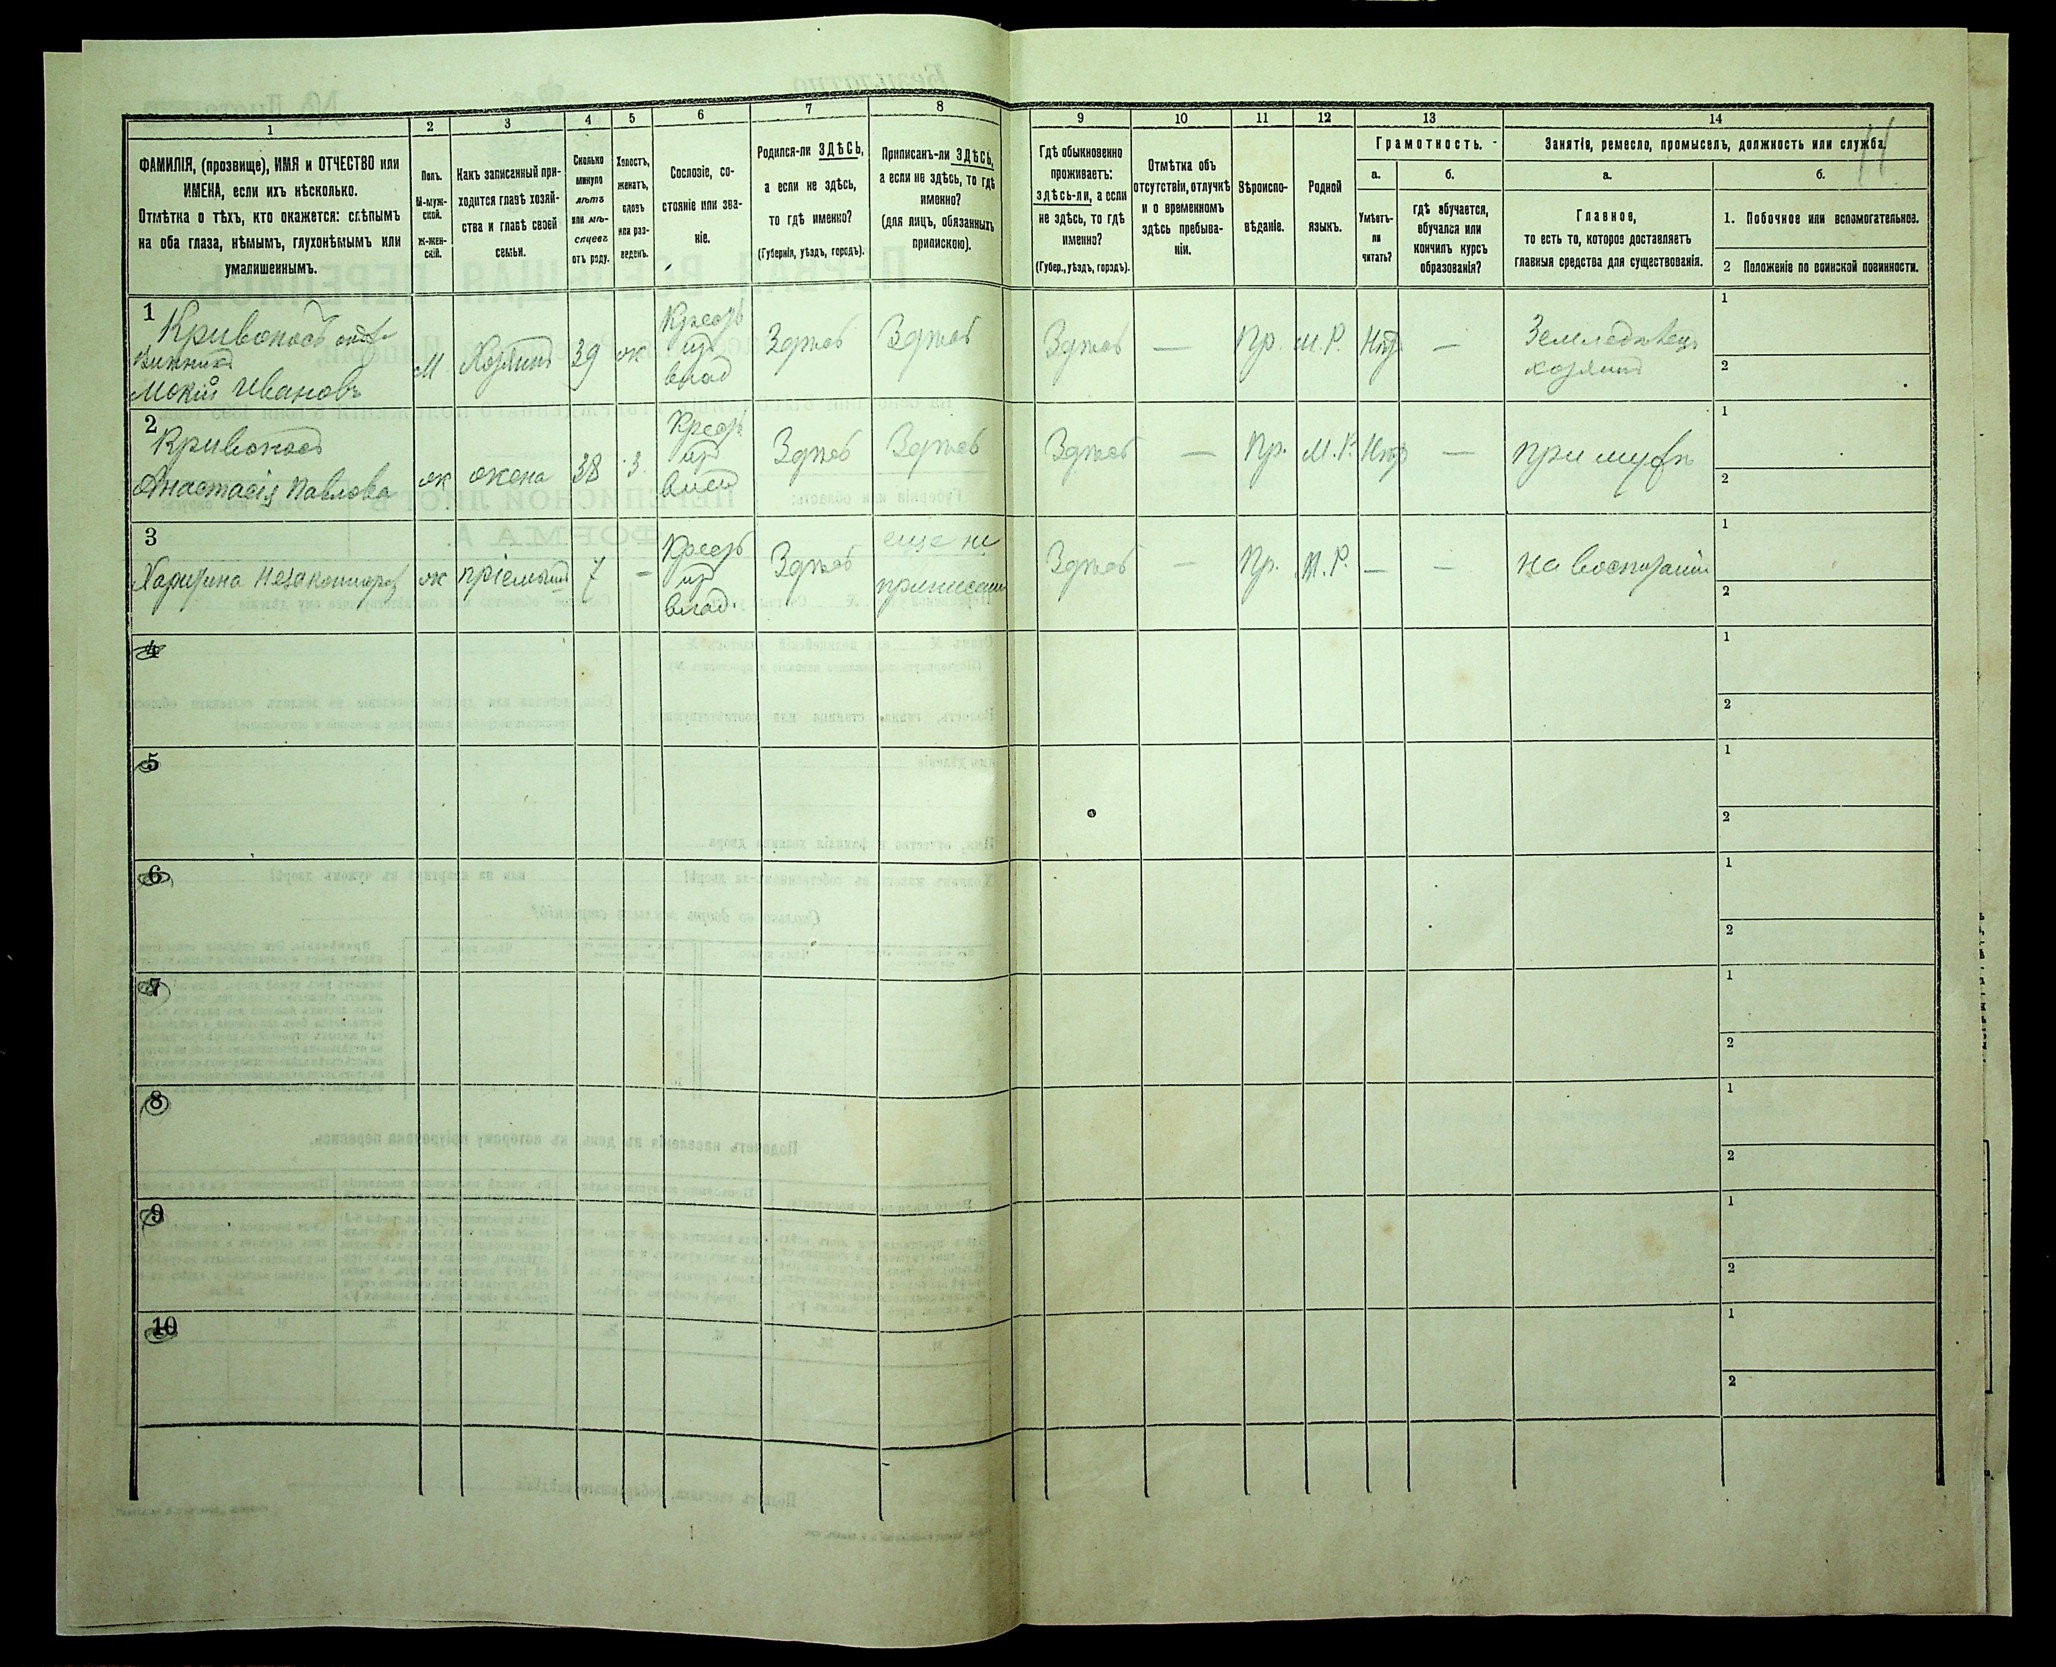 11
1
2
3
4
5
6
7
8
9
10
11
12
13
14
ФАМИЛІЯ, (прозвище), ИМЯ и ОТЧЕСТВО или
ИМЕНА, если ихъ нѣсколько.
Отмѣтка о тѣхъ, кто окажется: слѣпымъ
на оба глаза, нѣмымъ, глухонѣмымъ или
умалишеннымъ.
Полъ.
М-муж-
ской.
Ж-жен-
скій.
Какъ записанный при-
ходится главѣ хозяй-
ства и главѣ своей
семьи.
Сколько
минуло
лѣтъ
или мѣ-
сяцевъ
отъ роду.
Холостъ,
женатъ,
вдовъ
или раз-
веденъ.
Сословіе, со-
стояніе или зва-
ніе.
Родился-ли ЗДѢСЬ,
а если не здѣсь,
то гдѣ именно?
(Губернія, уѣздъ, городъ).
Приписанъ-ли ЗДѢСЬ,
а если не здѣсь, то гдѣ
именно?
(для лицъ, обязанныхъ
припискою).
Гдѣ обыкновенно
проживаетъ:
здѣсь-ли, а если
не здѣсь, то гдѣ
именно?
(Губер., уѣздъ, городъ).
Отмѣтка объ
отсутствіи, отлучкѣ
и о временномъ
здѣсь пребыва-
ніи.
Вѣроиспо-
вѣданіе.
Родной
языкъ.
Грамотность.
а.
Умѣетъ-
ли
читать?
б.
гдѣ обучается,
обучался или
кончилъ курсъ
образованія?
Занятія, ремесло, промыселъ, должность или служба.
а.
Главное,
то есть то, которое доставляетъ
главныя средства для существованія.
б.
1. Побочное или вспомогательное.
2 Положеніе по воинской повинности.
1
Кривоносъ
Мокій Ивановъ
М
Хозяинъ
39
ж
Крест
из
влад
Здѣсь
Здѣсь
Здѣсь
—
Пр.
М.Р.
Нѣт
—
Земледѣлецъ
хозяинъ
1
2
2
Кривоносъ
Анастасія Павлова
ж
жена
38
З.
Крест
из
влад
Здѣсь
Здѣсь
Здѣсь
—
Пр.
М.Р.
Нѣт
—
при мужѣ
1
2
3
Харитина
ж
пріемышъ
7
-
Крест
из
влад.
Здѣсь
еще не
приписана
Здѣсь
—
Пр.
М.Р.
—
—
на воспитаніи
1
2
4
1
2
5
1
2
6
1
2
7
1
2
8
1
2
9
1
2
10
1
2